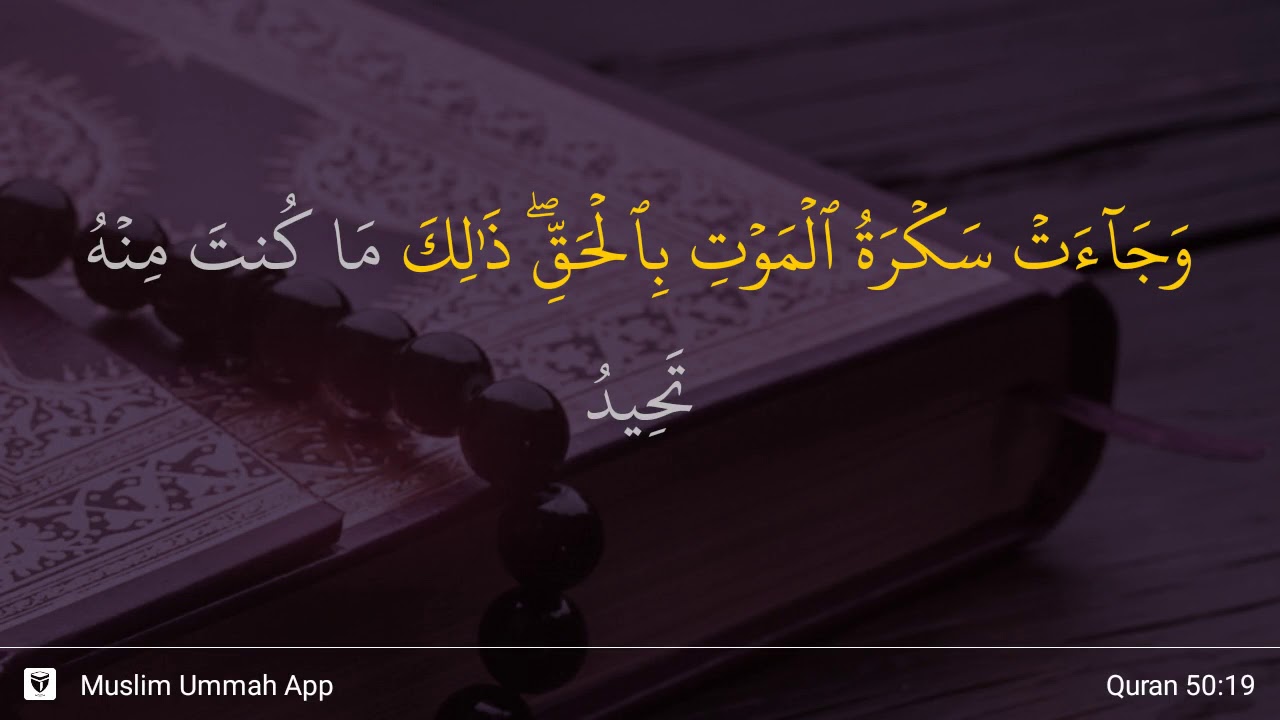 وَجَآءَتۡ سَكۡرَةُ ٱلۡمَوۡتِ بِٱلۡحَقِّۖ ذَٰلِكَ مَا كُنتَ مِنۡهُ
تَحِيدُ
Muslim Ummah App
Quran 50:19